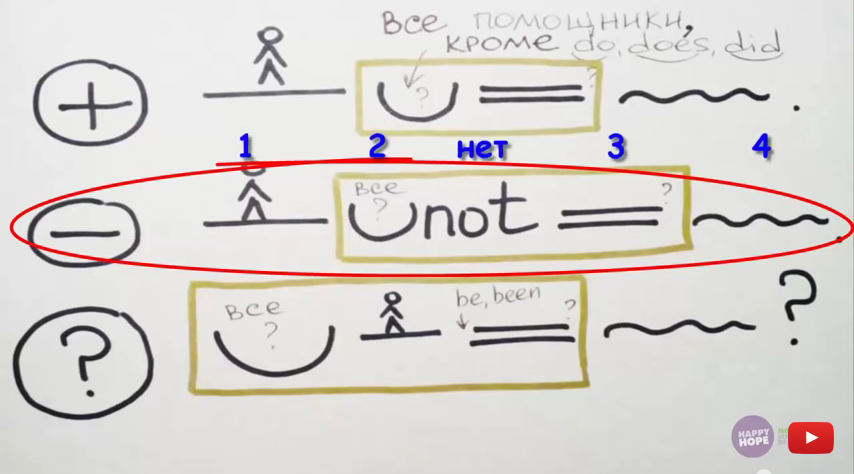 Все помощники,
кроме do, does, did
+
?
?
.
1 2 нет 3 4
все
?
?
not
.
be, been
Все
?
?
?
?
.
HAPPY
HOPE